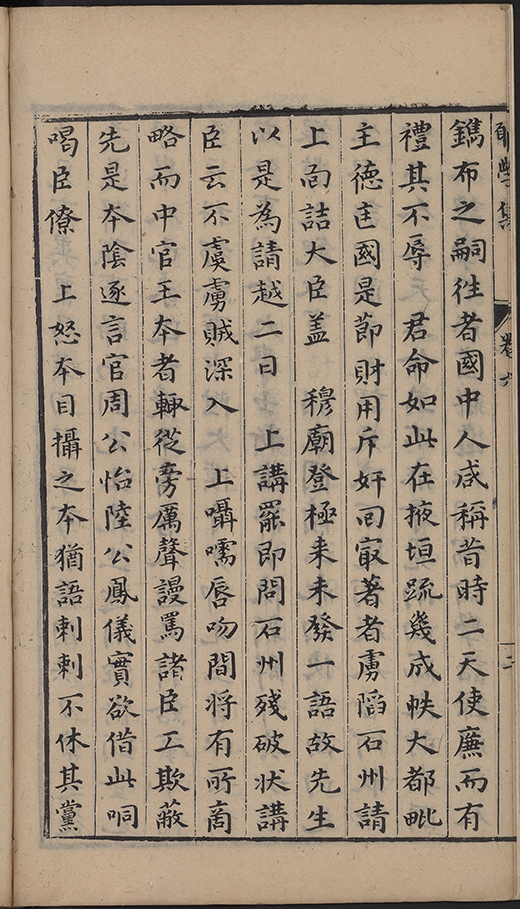 卷六
二
鐫布之嗣徃者國中人咸稱昔時二天使廉而有
禮其不辱　君命如此在掖垣疏幾成帙大都毗
主德㤮國是莭財用斥奸囘㝡著者虜䧟石州請
上面詰大臣盖　穆廟登極来未發一語故先生
以是為請越二日　上講罷即問石州殘破狀講
臣云不虞虜賊深入　上囁嚅唇吻間将有所商
略而中官王本者輙從旁厲聲謾罵諸臣工欺蔽
先是本陰逐言官周公怡陸公鳳儀實欲借此哃
喝臣僚　上怒本目攝之本猶語剌剌不休其黨